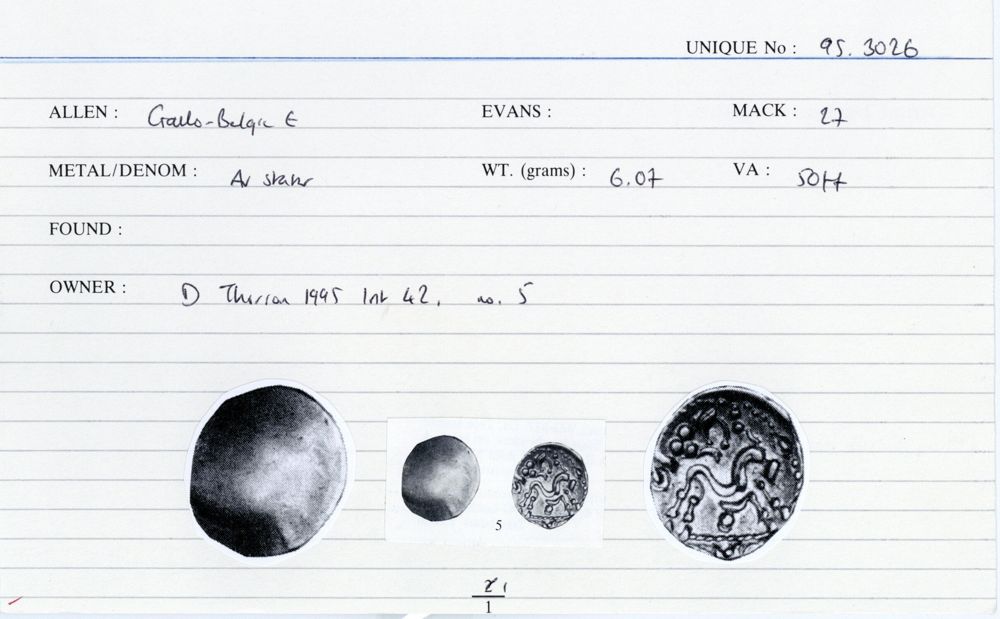 UNIQUE No : 95.3026
ALLEN : Gallo-Belgic E EVANS : MACK : 27
METAL/DENOM : AV stater WT. (grams) : 6.07 VA :
FOUND :
OWNER : D 1995 42, no. 5
5
1